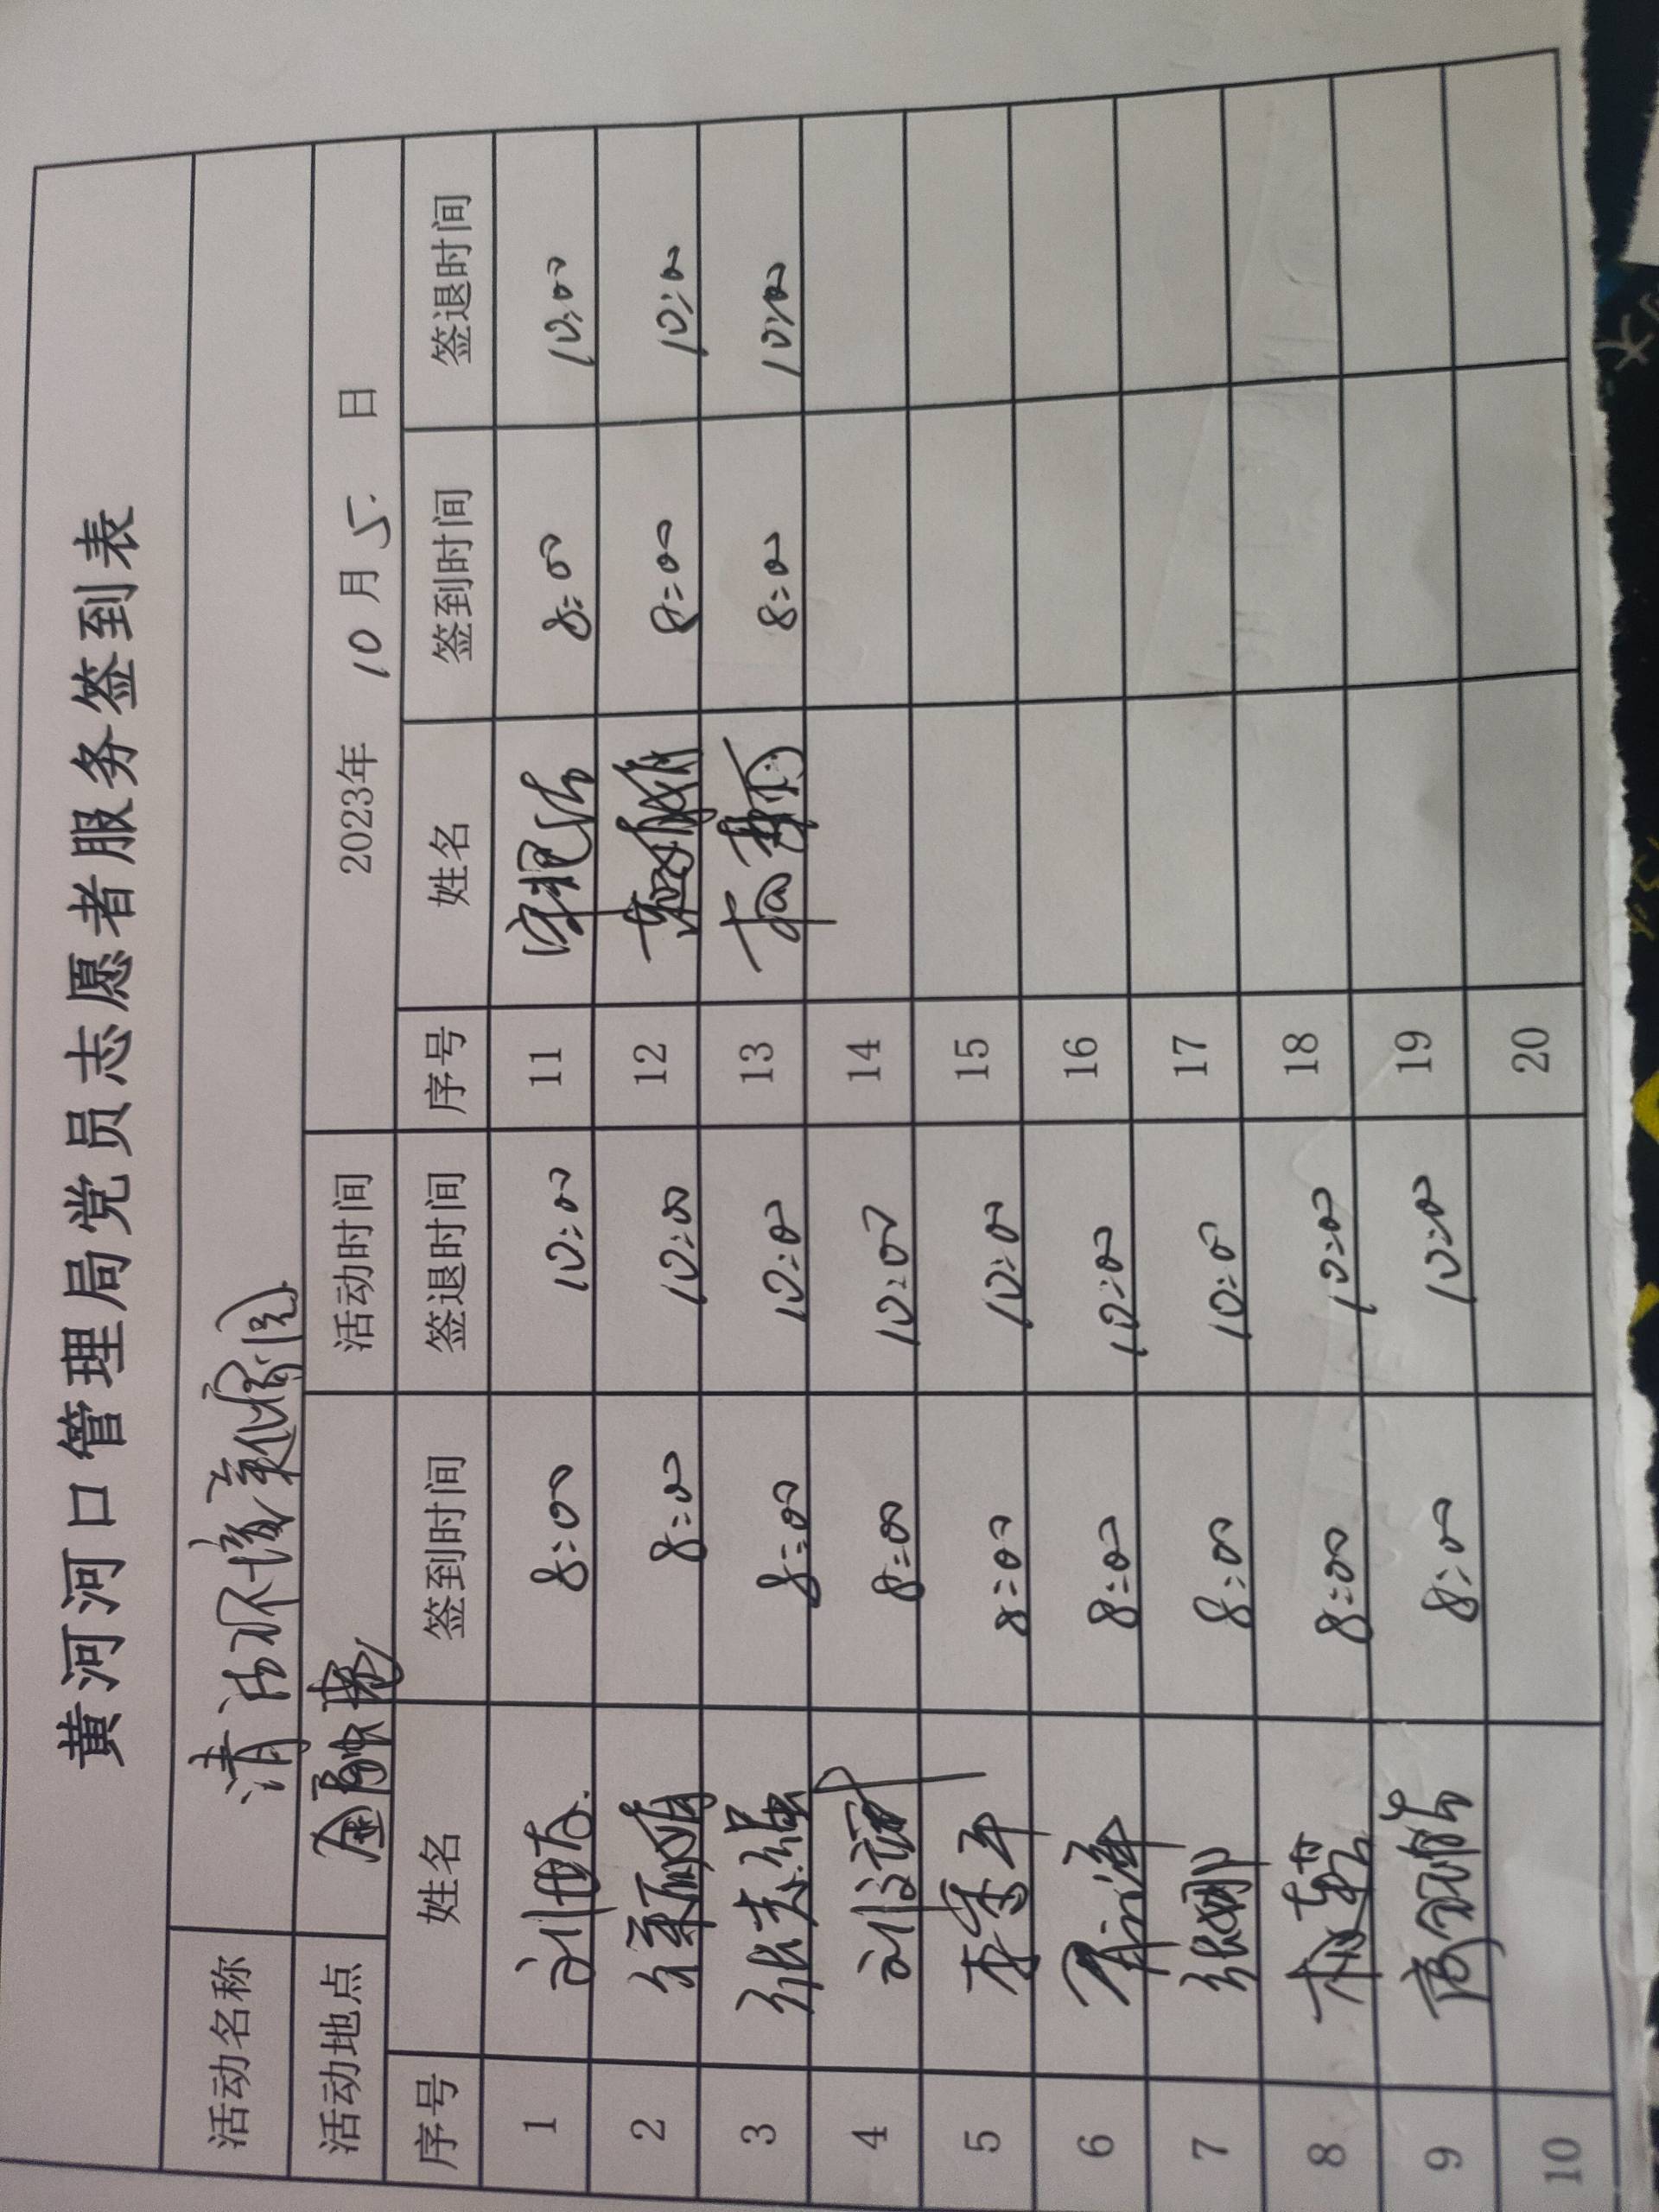 黄河河口管理局党员志愿者服务签到表
活动名称 清洁环境 家园
活动地点 金融港 活动时间 2023年 10 月 5. 日
序号 姓名 签到时间 签退时间 序号 姓名 签到时间 签退时间
1 8:00 10:00 11 8:00 10:00
2 8:00 10:00 12 8:00 10:00
3 张志强 8:00 10:00 13 8:00 10:00
4 8:00 10:00 14
5 8:00 10:00 15
6 8:00 10:00 16
7 张娜 8:00 10:00 17
8 8:00 10:00 18
9 8:00 10:00 19
10 20